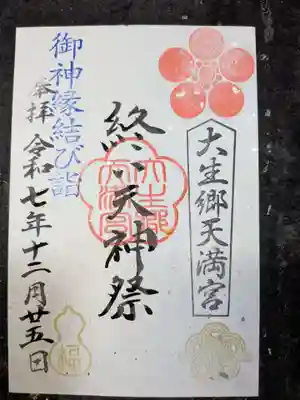 大生郷天満宮
終い天神祭
御神縁結び詣
奉拝 令和七年十二月廿五日
福